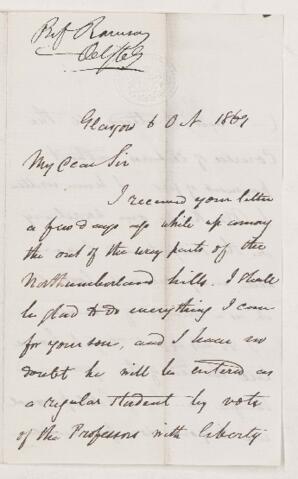 Glasgow 6 Oct 1869
My Dear Sir
I received your letter
a few days ago while up among
the out of the way parts of the
Northumberland hills. I shall
be glad to do everything I can
for your son, and I have no
doubt he will be entered as
a regular student by vote
of the Professors with liberty